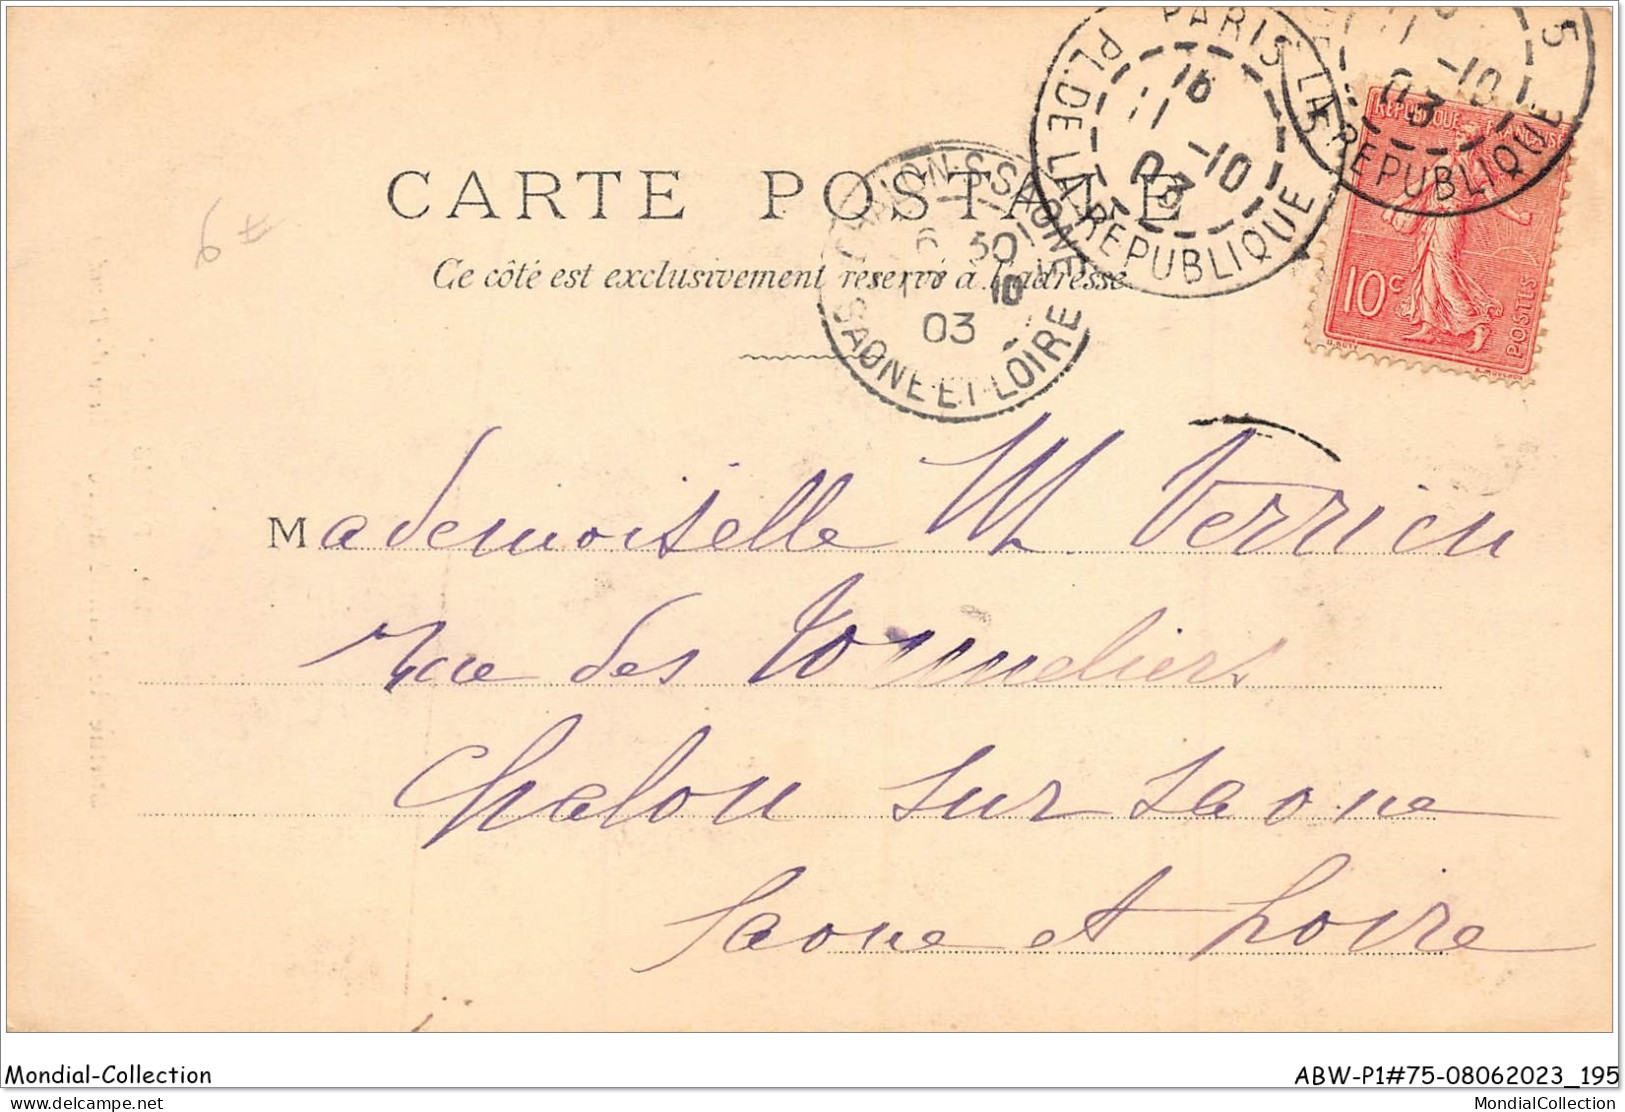 PARIS
PL. DE LA REPUBLIQUE
16
11 -10
03
5
LA REPUBLIQUE
-10
03
REPUBLIQUE FRANÇAISE
10c
POSTES
CARTE POSTALE
Ce côté est exclusivement réservé à l'adresse
CHALON-S-SAONE
30
10
03
SAONE-ET-LOIRE
6
Mademoiselle M. Verrien
rue des Tonneliers
Chalon sur Saone
Saone et Loire
Mondial-Collection
ABW-P1#75-08062023_195
delcampe.net
MondialCollection